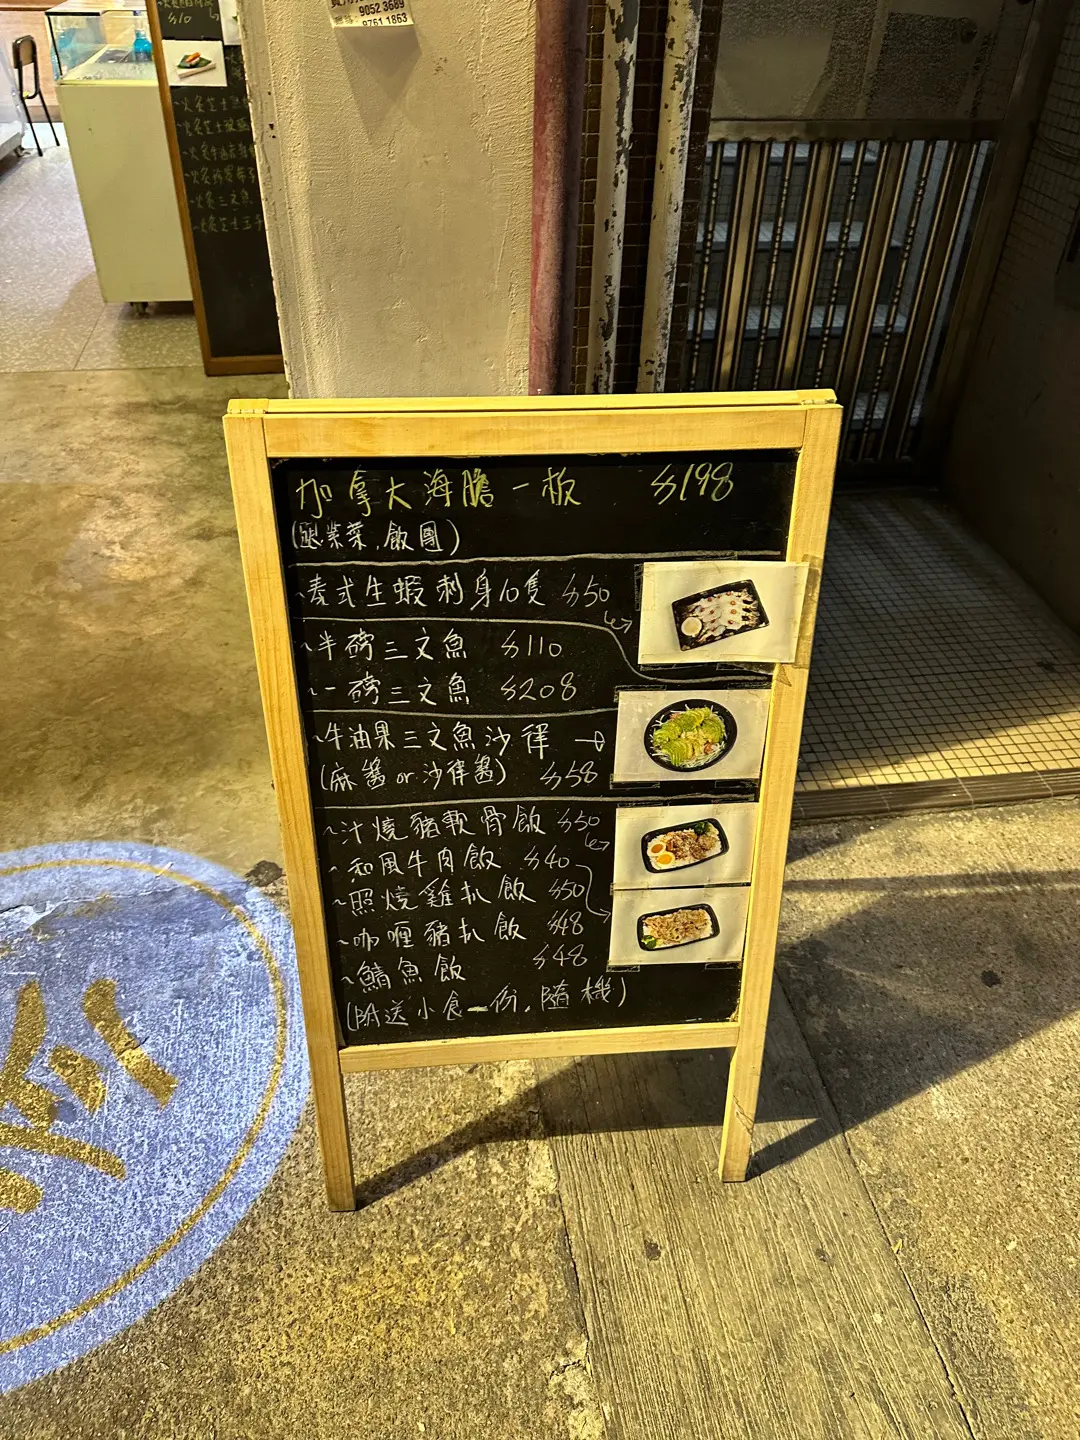 9052 3689
9761 1863
$10
加拿大海膽一板 $198
(跟紫菜.飯團)
~泰式生蝦刺身10隻 $50
~半磅三文魚 $110
~一磅三文魚 $208
~牛油果三文魚沙律
(麻醬or沙律醬) $58
~汁燒豬軟骨飯 $50
~和風牛肉飯 $40
~照燒雞扒飯 $50
~咖喱豬扒飯 $48
~鯖魚飯 $48
(附送小食一份,隨機)